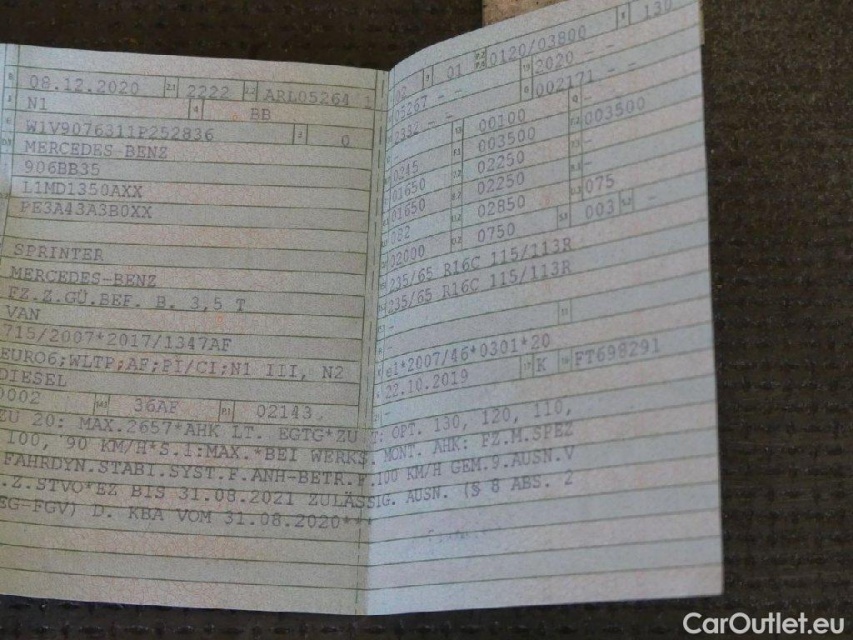 08.12.2020 2222 ARL05264 1
N1 BB
W1V9076311P252836 0
MERCEDES-BENZ
906BB35
L1MD1350AXX
PE3A43A3B0XX
SPRINTER
MERCEDES-BENZ
FZ.Z.GÜ.BEF. B. 3,5 T
VAN
715/2007*2017/1347AF
EURO6;WLTP;AF;PI/CI;N1 III, N2
DIESEL
0002 36AF 02143
02 01 0120/03800 130
2020 - -
03267 - - 002171 - -
2332 - - 00100
003500 003500
0245 02250 -
01650 02250 -
01650 02850 075
082 0750 003 -
02000
235/65 R16C 115/113R
235/65 R16C 115/113R
-
e1*2007/46*0301*20
22.10.2019 K FT698291
-
ZU 20: MAX.2657*AHK LT. EGTG*ZU T: OPT. 130, 120, 110,
100, 90 KM/H*S.1:MAX.*BEI WERKS. MONT. AHK: FZ.M.SPEZ
FAHRDYN.STABI.SYST.F.ANH-BETR.F.100 KM/H GEM.9.AUSN.V
.Z.STVO*EZ BIS 31.08.2021 ZULÄSSIG. AUSN. (§ 8 ABS. 2
EG-FGV) D. KBA VOM 31.08.2020***
CarOutlet.eu